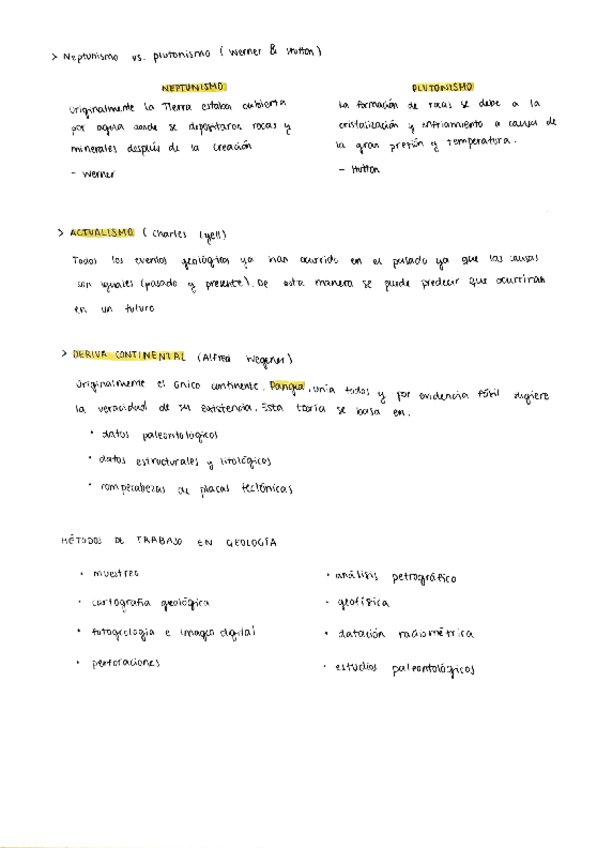 > Neptunismo vs. plutonismo ( Werner & Hutton )
NEPTUNISMO
originalmente la Tierra estaba cubierta
por agua donde se depositaron rocas y
minerales después de la creación
- Werner
PLUTONISMO
La formación de rocas se debe a la
cristalización y enfriamiento a causa de
la gran presión y temperatura.
- Hutton
> ACTUALISMO ( Charles Lyell )
Todos los eventos geológicos ya han ocurrido en el pasado ya que las causas
son iguales (pasado y presente). De esta manera se puede predecir que ocurrirán
en un futuro
> DERIVA CONTINENTAL (Alfred Wegener)
originalmente el único continente, Pangea, unía todos y por evidencia fósil sugiere
la veracidad de su existencia. Esta teoría se basa en:
• datos paleontológicos
• datos estructurales y litológicos
• rompecabezas de placas tectónicas
MÉTODOS DE TRABAJO EN GEOLOGÍA
• muestreo
• cartografía geológica
• fotogeología e imagen digital
• perforaciones
• análisis petrográfico
• geofísica
• datación radiométrica
• estudios paleontológicos